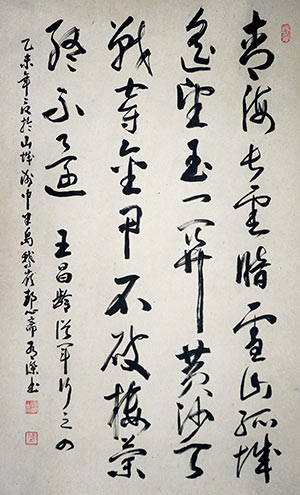 青海長雲暗雪山孤城
遙望玉門關黄沙百
戰穿金甲不破樓蘭
終不還 王昌齡從軍行之四
乙未年 於山城渝中半島 書